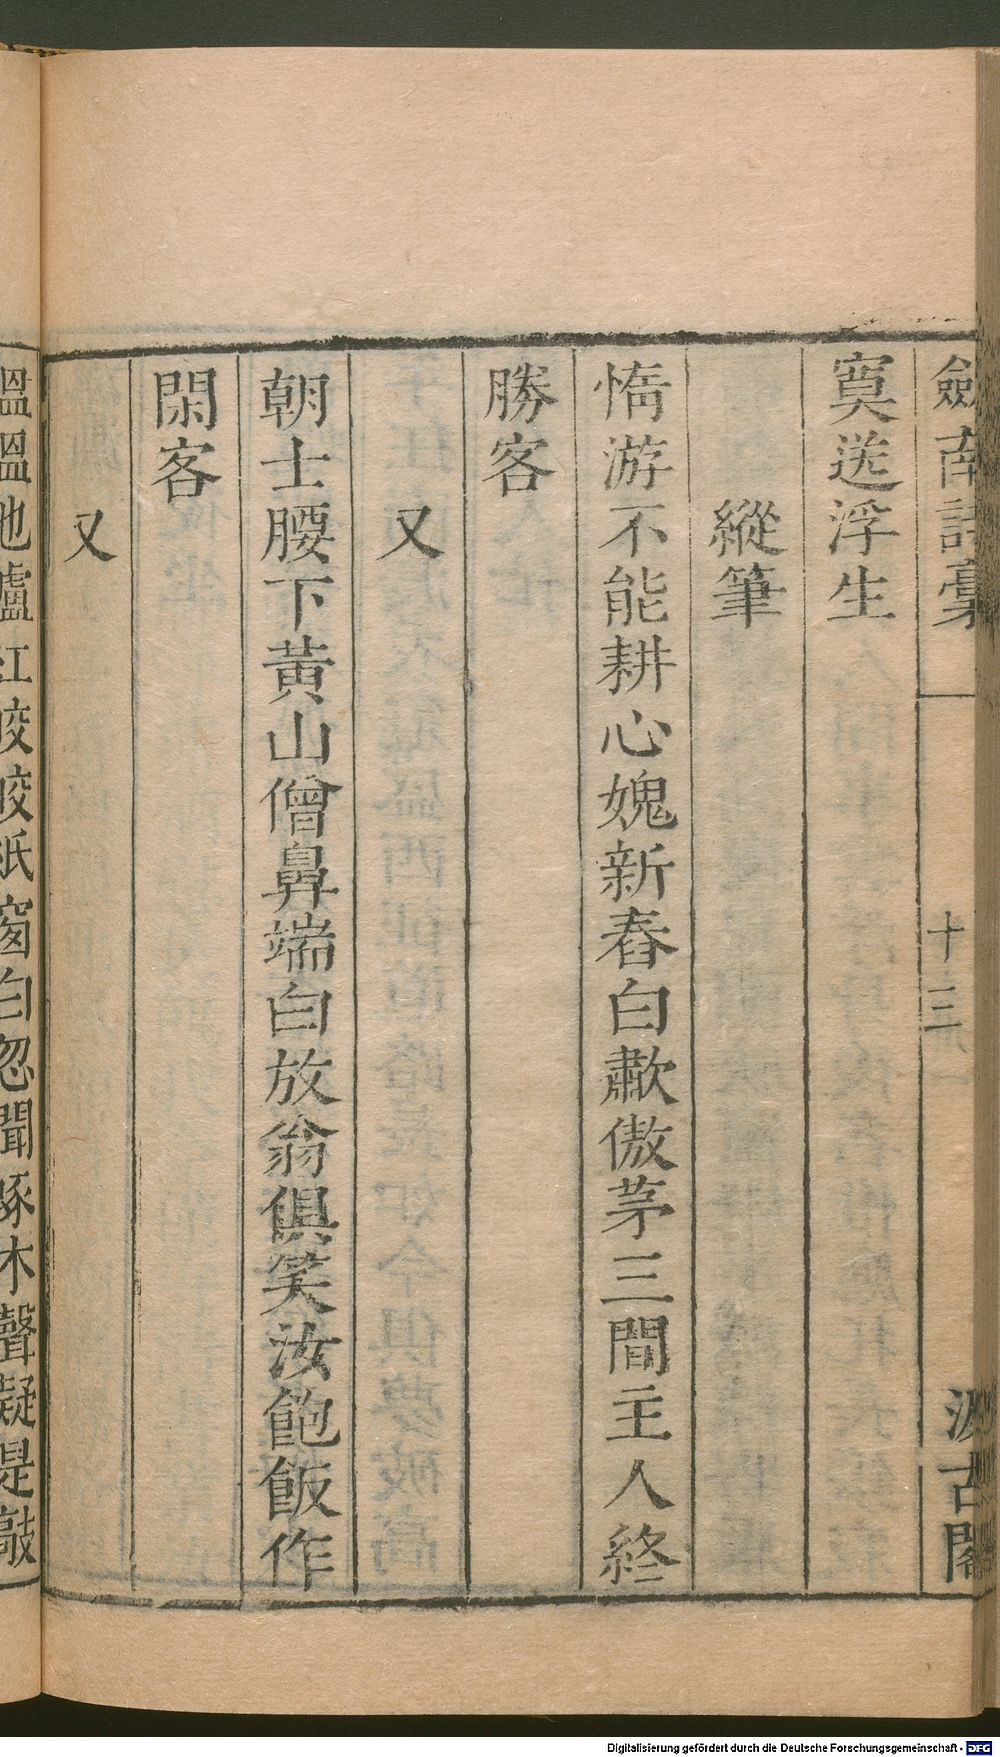 劒南詩稾
十三
汲古閣
寞送浮生
縱筆
惰游不能耕心媿新舂白歗傲茅三間主人終
勝客
又
朝士腰下黄山僧鼻端白放翁俱笑汝飽飯作
閑客
又
温温地爐紅皎皎紙窗白忽聞啄木聲疑是敲
Digitalisierung gefördert durch die Deutsche Forschungsgemeinschaft - DFG